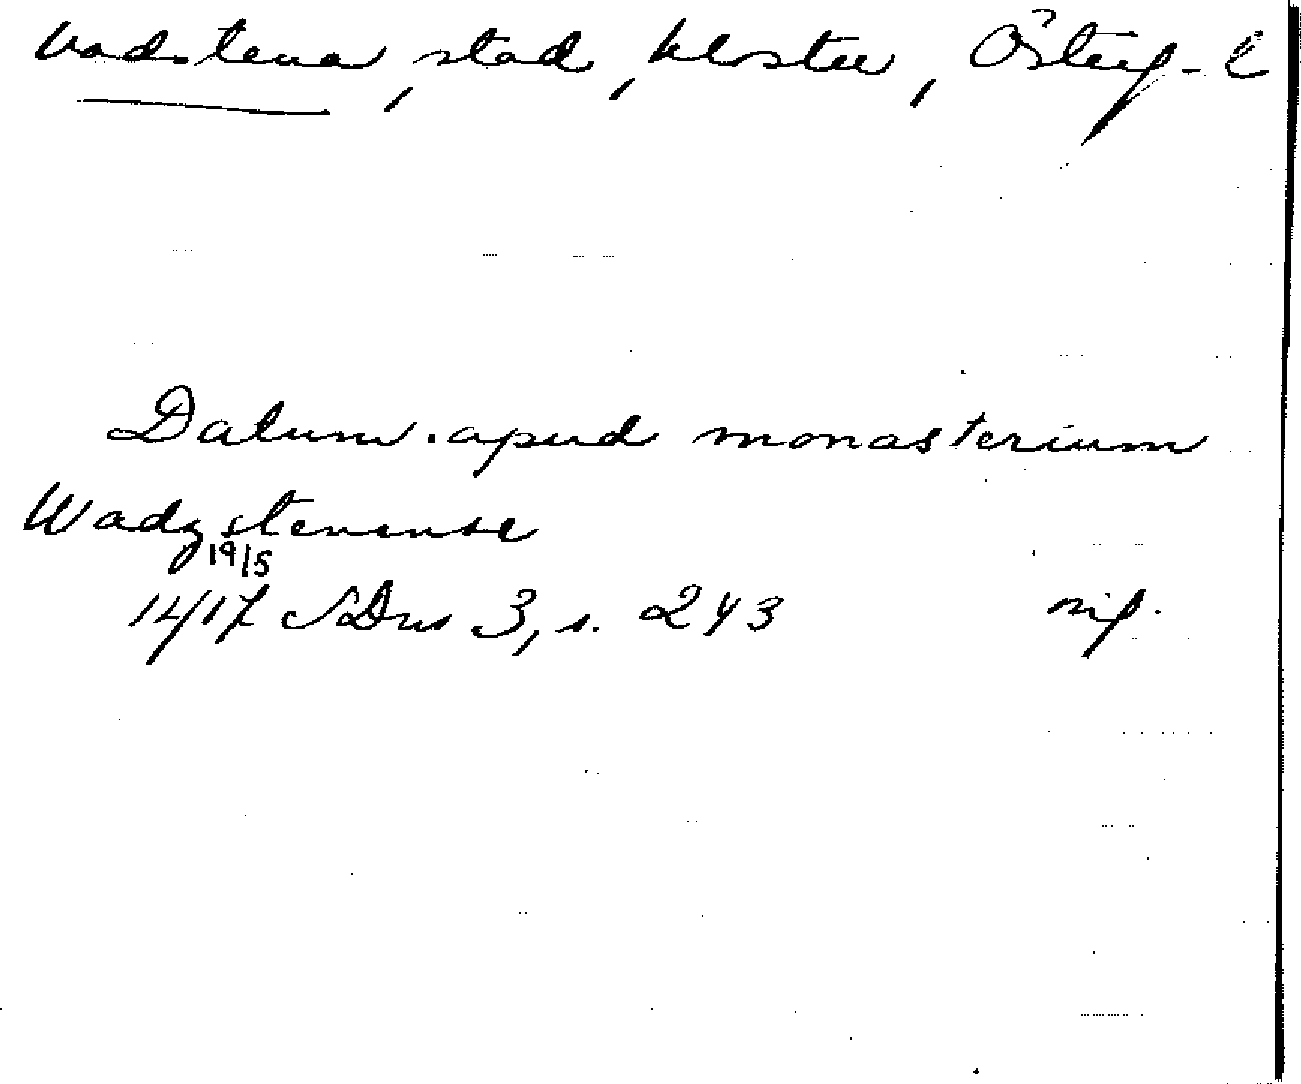 Vadstena, stad, kloster, Österg-L
Datum apud monasterium
Wadzstenense
19/5
1417 SDns 3, s. 243